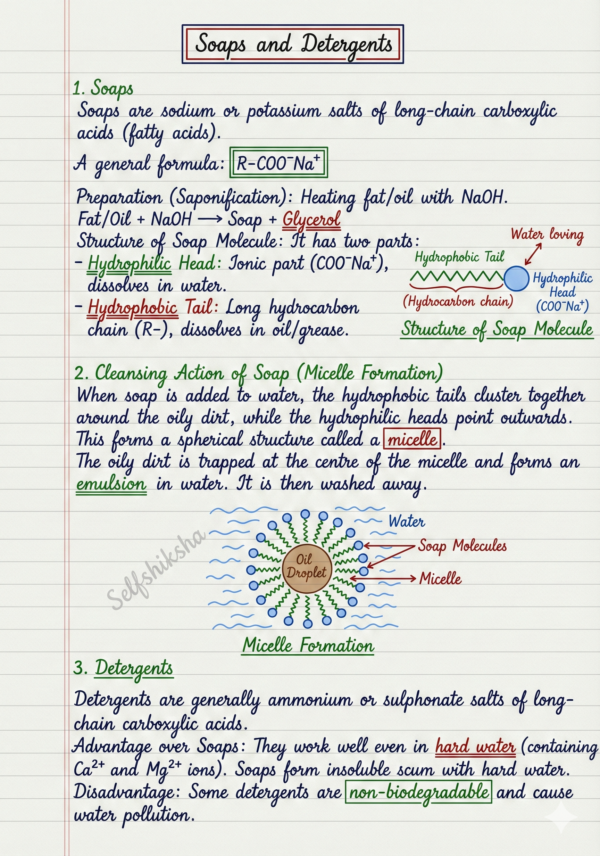 Soaps and Detergents
1. Soaps
Soaps are sodium or potassium salts of long-chain carboxylic
acids (fatty acids).
A general formula: R-COO⁻Na⁺
Preparation (Saponification): Heating fat/oil with NaOH.
Fat/Oil + NaOH → Soap + Glycerol
Structure of Soap Molecule: It has two parts:
- Hydrophilic Head: Ionic part (COO⁻Na⁺),
dissolves in water.
- Hydrophobic Tail: Long hydrocarbon
chain (R-), dissolves in oil/grease.
Water loving
Hydrophobic Tail
(Hydrocarbon chain)
Hydrophilic
Head
(COO⁻Na⁺)
Structure of Soap Molecule
2. Cleansing Action of Soap (Micelle Formation)
When soap is added to water, the hydrophobic tails cluster together
around the oily dirt, while the hydrophilic heads point outwards.
This forms a spherical structure called a micelle.
The oily dirt is trapped at the centre of the micelle and forms an
emulsion in water. It is then washed away.
Selfshiksha
Water
Soap Molecules
Oil
Droplet
Micelle
Micelle Formation
3. Detergents
Detergents are generally ammonium or sulphonate salts of long-
chain carboxylic acids.
Advantage over Soaps: They work well even in hard water (containing
Ca²⁺ and Mg²⁺ ions). Soaps form insoluble scum with hard water.
Disadvantage: Some detergents are non-biodegradable and cause
water pollution.